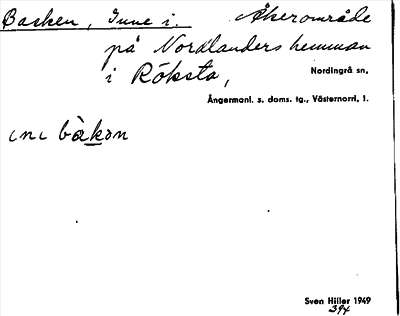 Basken, Inne i. Åkerområde
på Nordlanders hemman
i Röksta,
Nordingrå sn,
Ångermanl. s. doms. tg., Västernorrl. l.
ini bàkon
Sven Hiller 1949
394